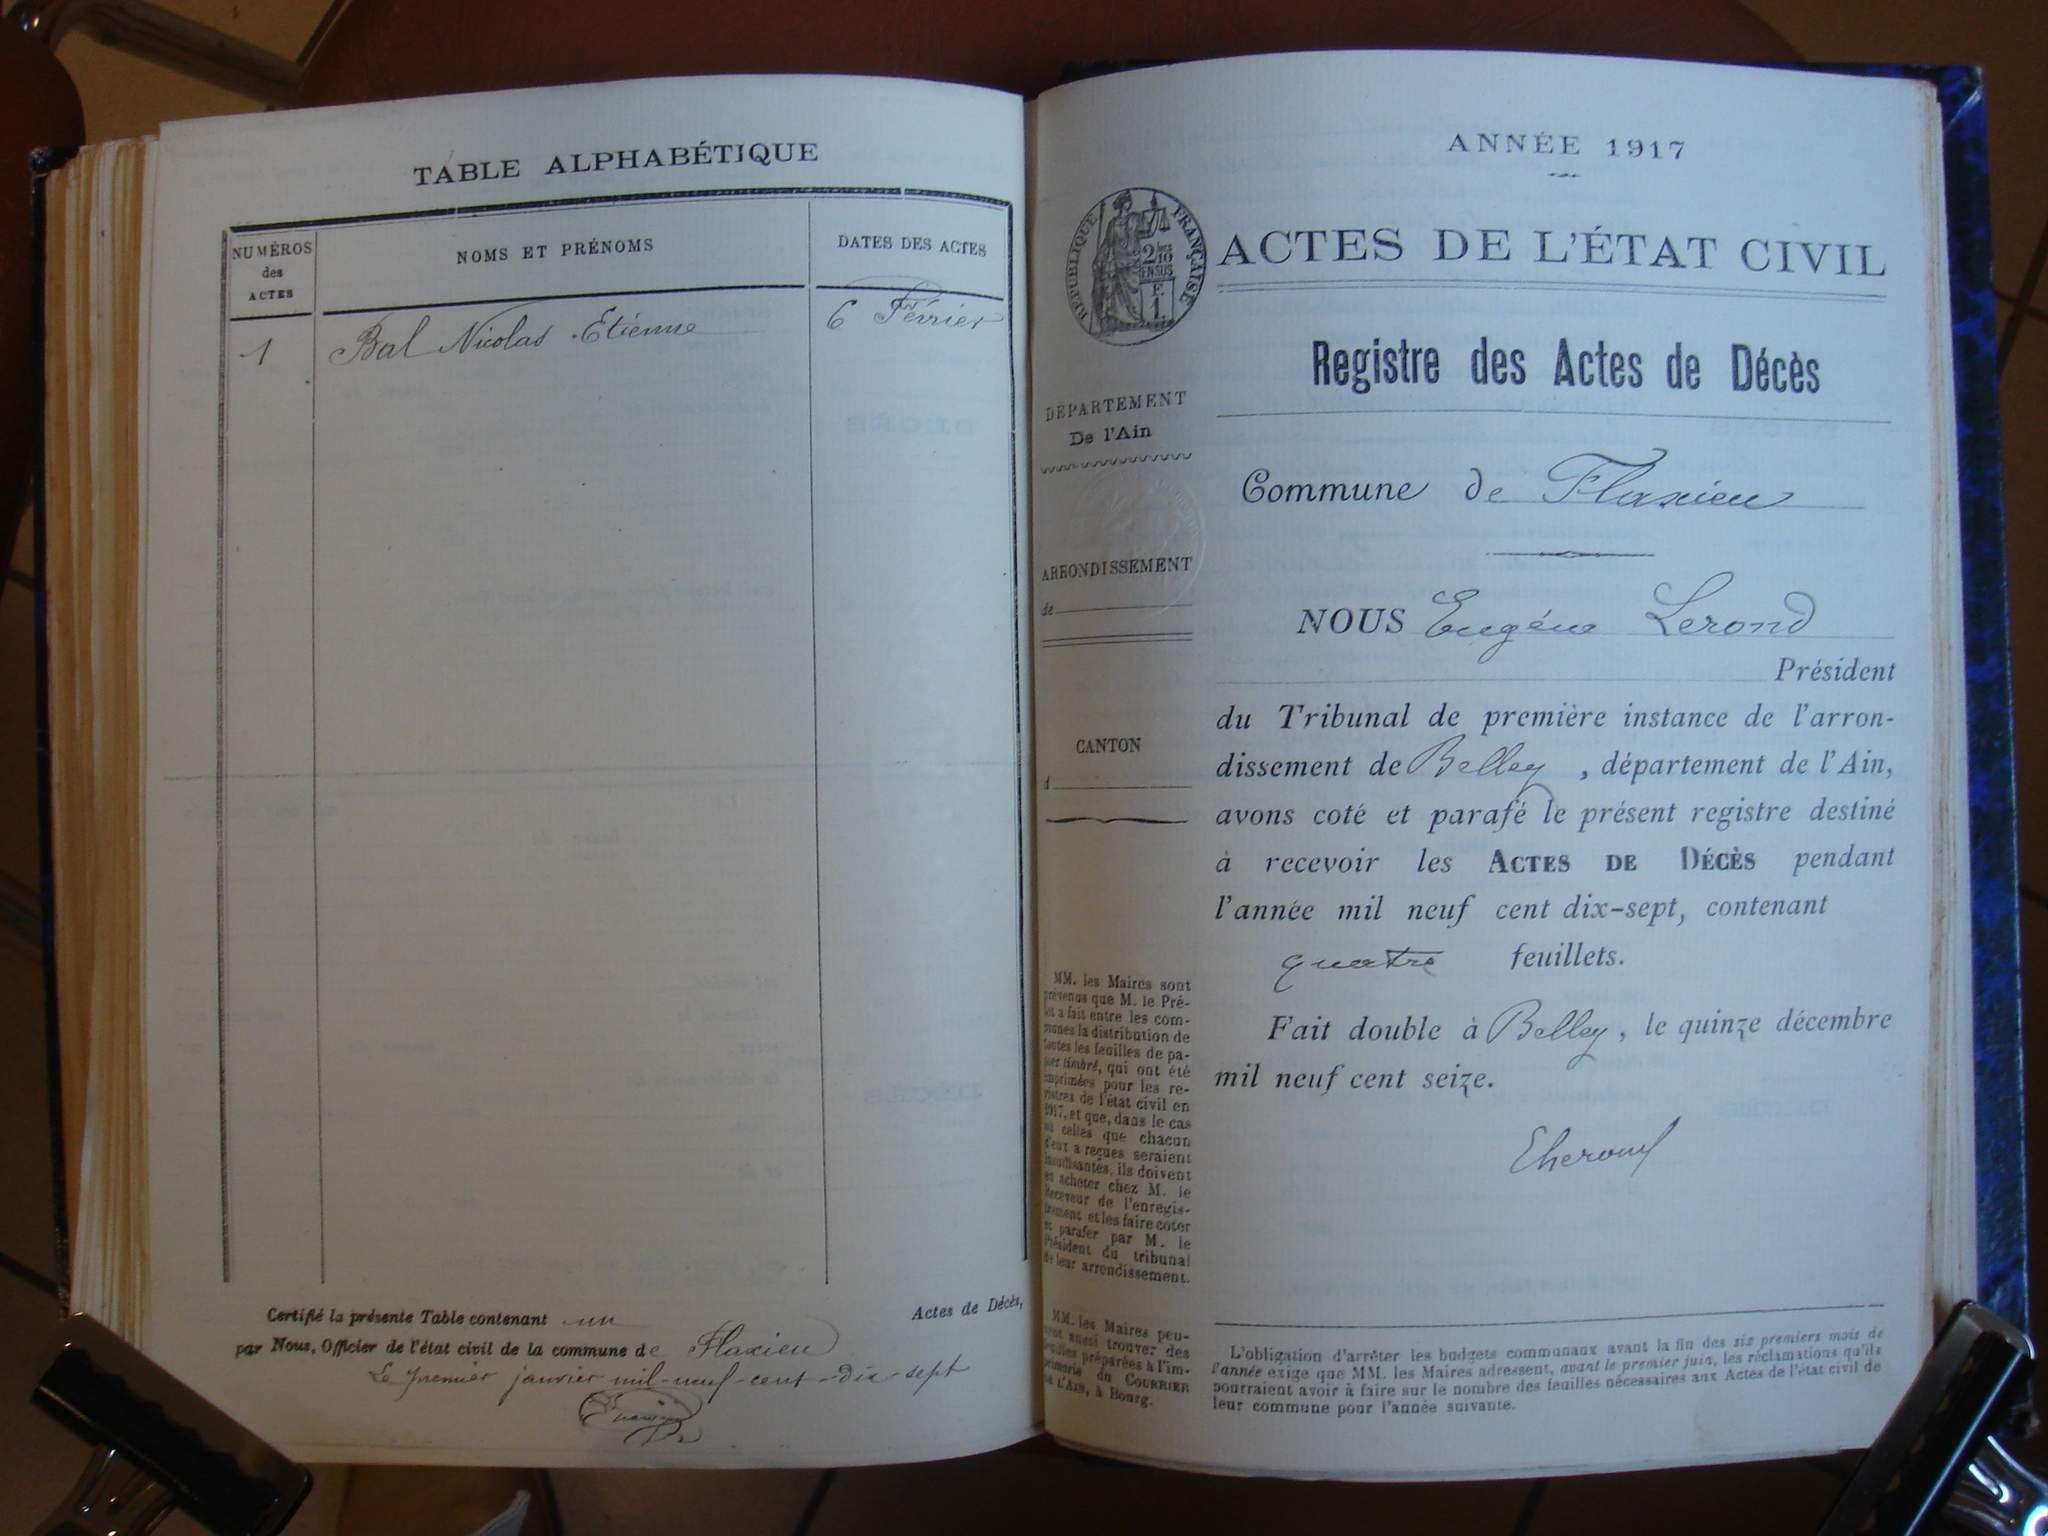 TABLE ALPHABÉTIQUE
NUMÉROS
des
ACTES
NOMS ET PRÉNOMS
DATES DES ACTES
1 Bal Nicolas Etienne 6 Février
Certifié la présente Table contenant un Actes de Décès,
par Nous, Officier de l'état civil de la commune de Flaxieu
Le premier janvier mil-neuf-cent-dix-sept
ANNÉE 1917
RÉPUBLIQUE FRANÇAISE
2/10
EN SUS
F.
1.
ACTES DE L'ÉTAT CIVIL
Registre des Actes de Décès
DÉPARTEMENT
De l'Ain
Commune de Flaxieu
ARRONDISSEMENT
de
NOUS Eugène Lerond
Président
du Tribunal de première instance de l'arron-
dissement de Belley, département de l'Ain,
CANTON
d
avons coté et parafé le présent registre destiné
à recevoir les ACTES DE DÉCÈS pendant
l'année mil neuf cent dix-sept, contenant
quatre feuillets.
Fait double à Belley, le quinze décembre
mil neuf cent seize.
MM. les Maires sont
prévenus que M. le Pré-
fet a fait entre les com-
munes la distribution de
toutes les feuilles de pa-
pier timbré, qui ont été
imprimées pour les re-
gistres de l'état civil en
1917, et que, dans le cas
où celles que chacun
d'eux a reçues seraient
insuffisantes, ils doivent
en acheter chez M. le
Receveur de l'enregis-
trement et les faire coter
et parafer par M. le
Président du tribunal
de leur arrondissement.
MM. les Maires peu-
vent aussi trouver des
feuilles préparées à l'im-
primerie du COURRIER
DE L'AIN, à Bourg.
L'obligation d'arrêter les budgets communaux avant la fin des six premiers mois de
l'année exige que MM. les Maires adressent, avant le premier juin, les réclamations qu'ils
pourraient avoir à faire sur le nombre des feuilles nécessaires aux Actes de l'état civil de
leur commune pour l'année suivante.